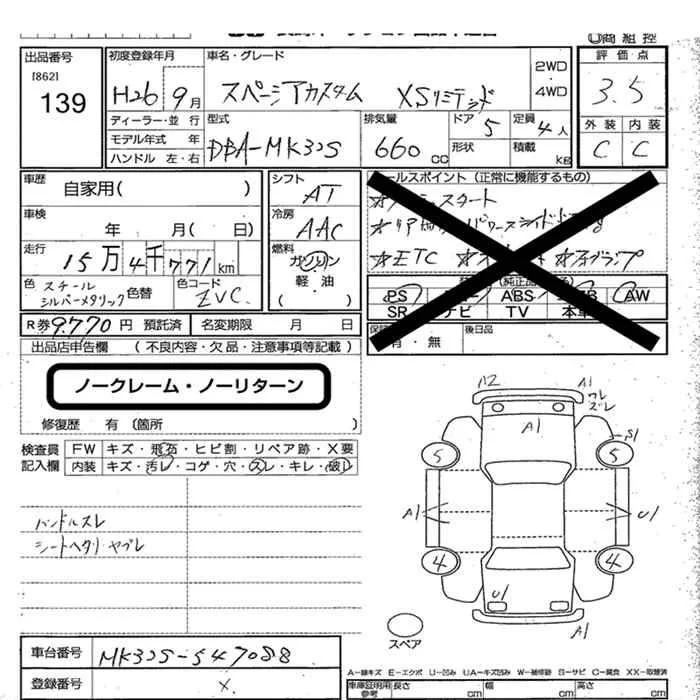 出品番号
[862]
139
初度登録年月
H26 9月
車名・グレード
スペーシアカスタム XSリミテッド
2WD
・
4WD
評価点
3.5
外装 内装
C C
ディーラー・並 行
モデル年式 年
ハンドル 左・右
型式
DBA-MK32S
排気量
660 cc
ドア 5
形状
定員 4人
積載 kg
車歴
自家用( )
車検
年 月( 日)
走行
15万4千771km
色 スチール
シルバーメタリック
色替
色コード
ZVC
シフト
AT
冷房
AAC
燃料
ガソリン
軽・油
( )
セールスポイント(正常に機能するもの)
☆ETC
PS ABS AW
SR ナビ TV
有・無
後日品
R券9,770円 預託済
名変期限 月 日
出品店申告欄 (不良内容・欠品・注意事項等記載)
ノークレーム・ノーリターン
修復歴 有〔箇所 〕
検査員
記入欄
FW キズ・飛石・ヒビ割・リペア跡・X要
内装 キズ・汚レ・コゲ・穴・スレ・キレ・破レ
ハンドルスレ
シートヘタリ・ヤブレ
A2 A1
ワレ
ズレ
A1
S1
5 5
A1 U1
4 4
U1
A1
スペア
車台番号 MK32S-547088
登録番号 X.
A-線キズ E-エクボ U-凹み UA-キズ凹み W-補修跡 S-サビ C-腐食 XX-取替済
車庫証明用
参考
長さ cm 幅 cm 高さ cm